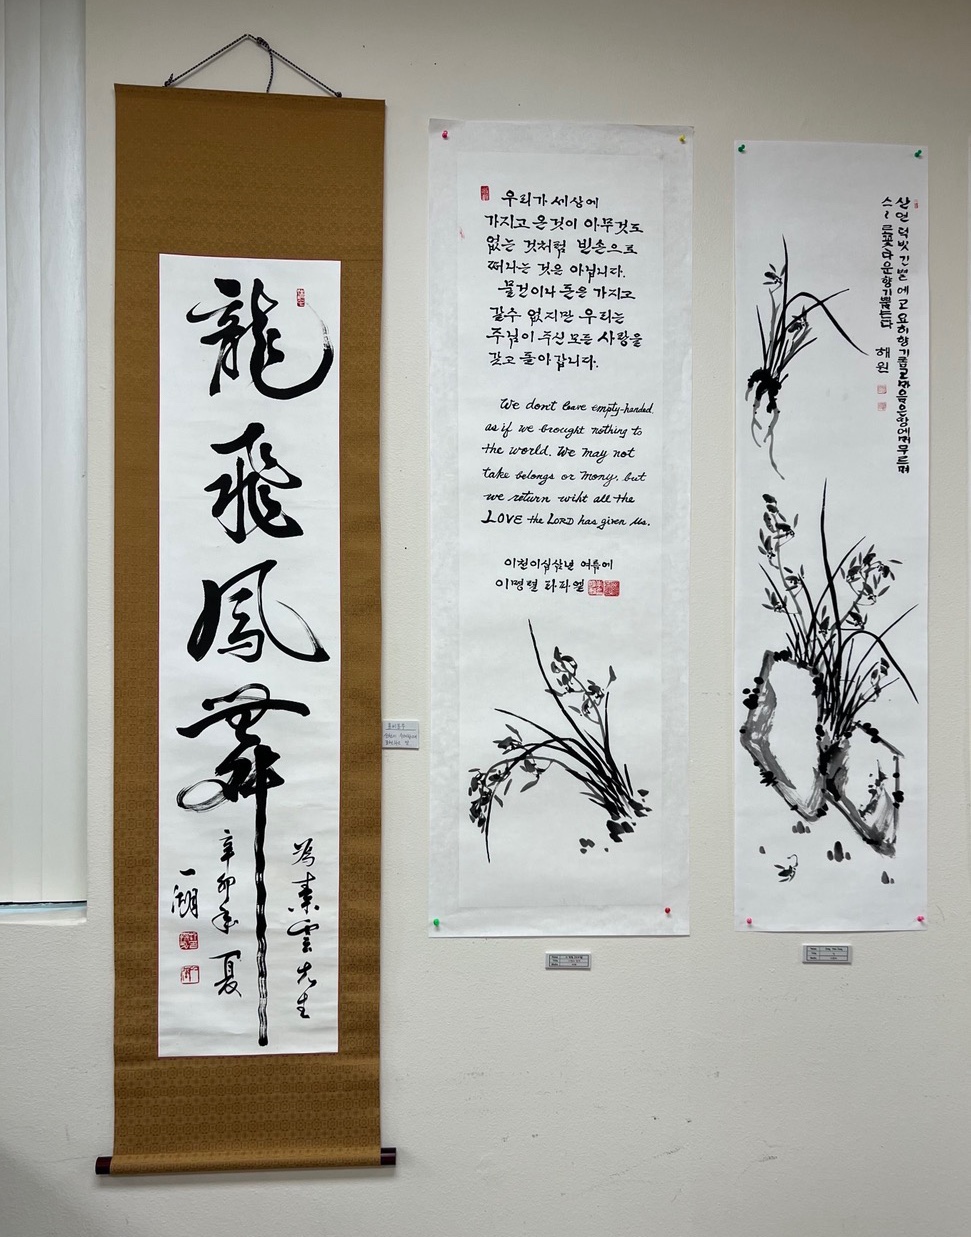 龍飛鳳舞
為素雲先生
辛卯年夏
一湖
우리가 세상에
가지고 온 것이 아무것도
없는 것처럼 빈손으로
떠나는 것은 아닙니다.
물건이나 돈은 가지고
갈수 없지만 우리는
주님이 주신 모든 사랑을
갖고 돌아갑니다.
We don't leave empty-handed,
as if we brought nothing to
the world. We may not
take belongs or mony, but
we return wiht all the
LOVE the LORD has given us.
이천이십삼년 여름에
이명렬 라파엘
산언덕 빗긴 볕에 고요히 향기 품고
해원